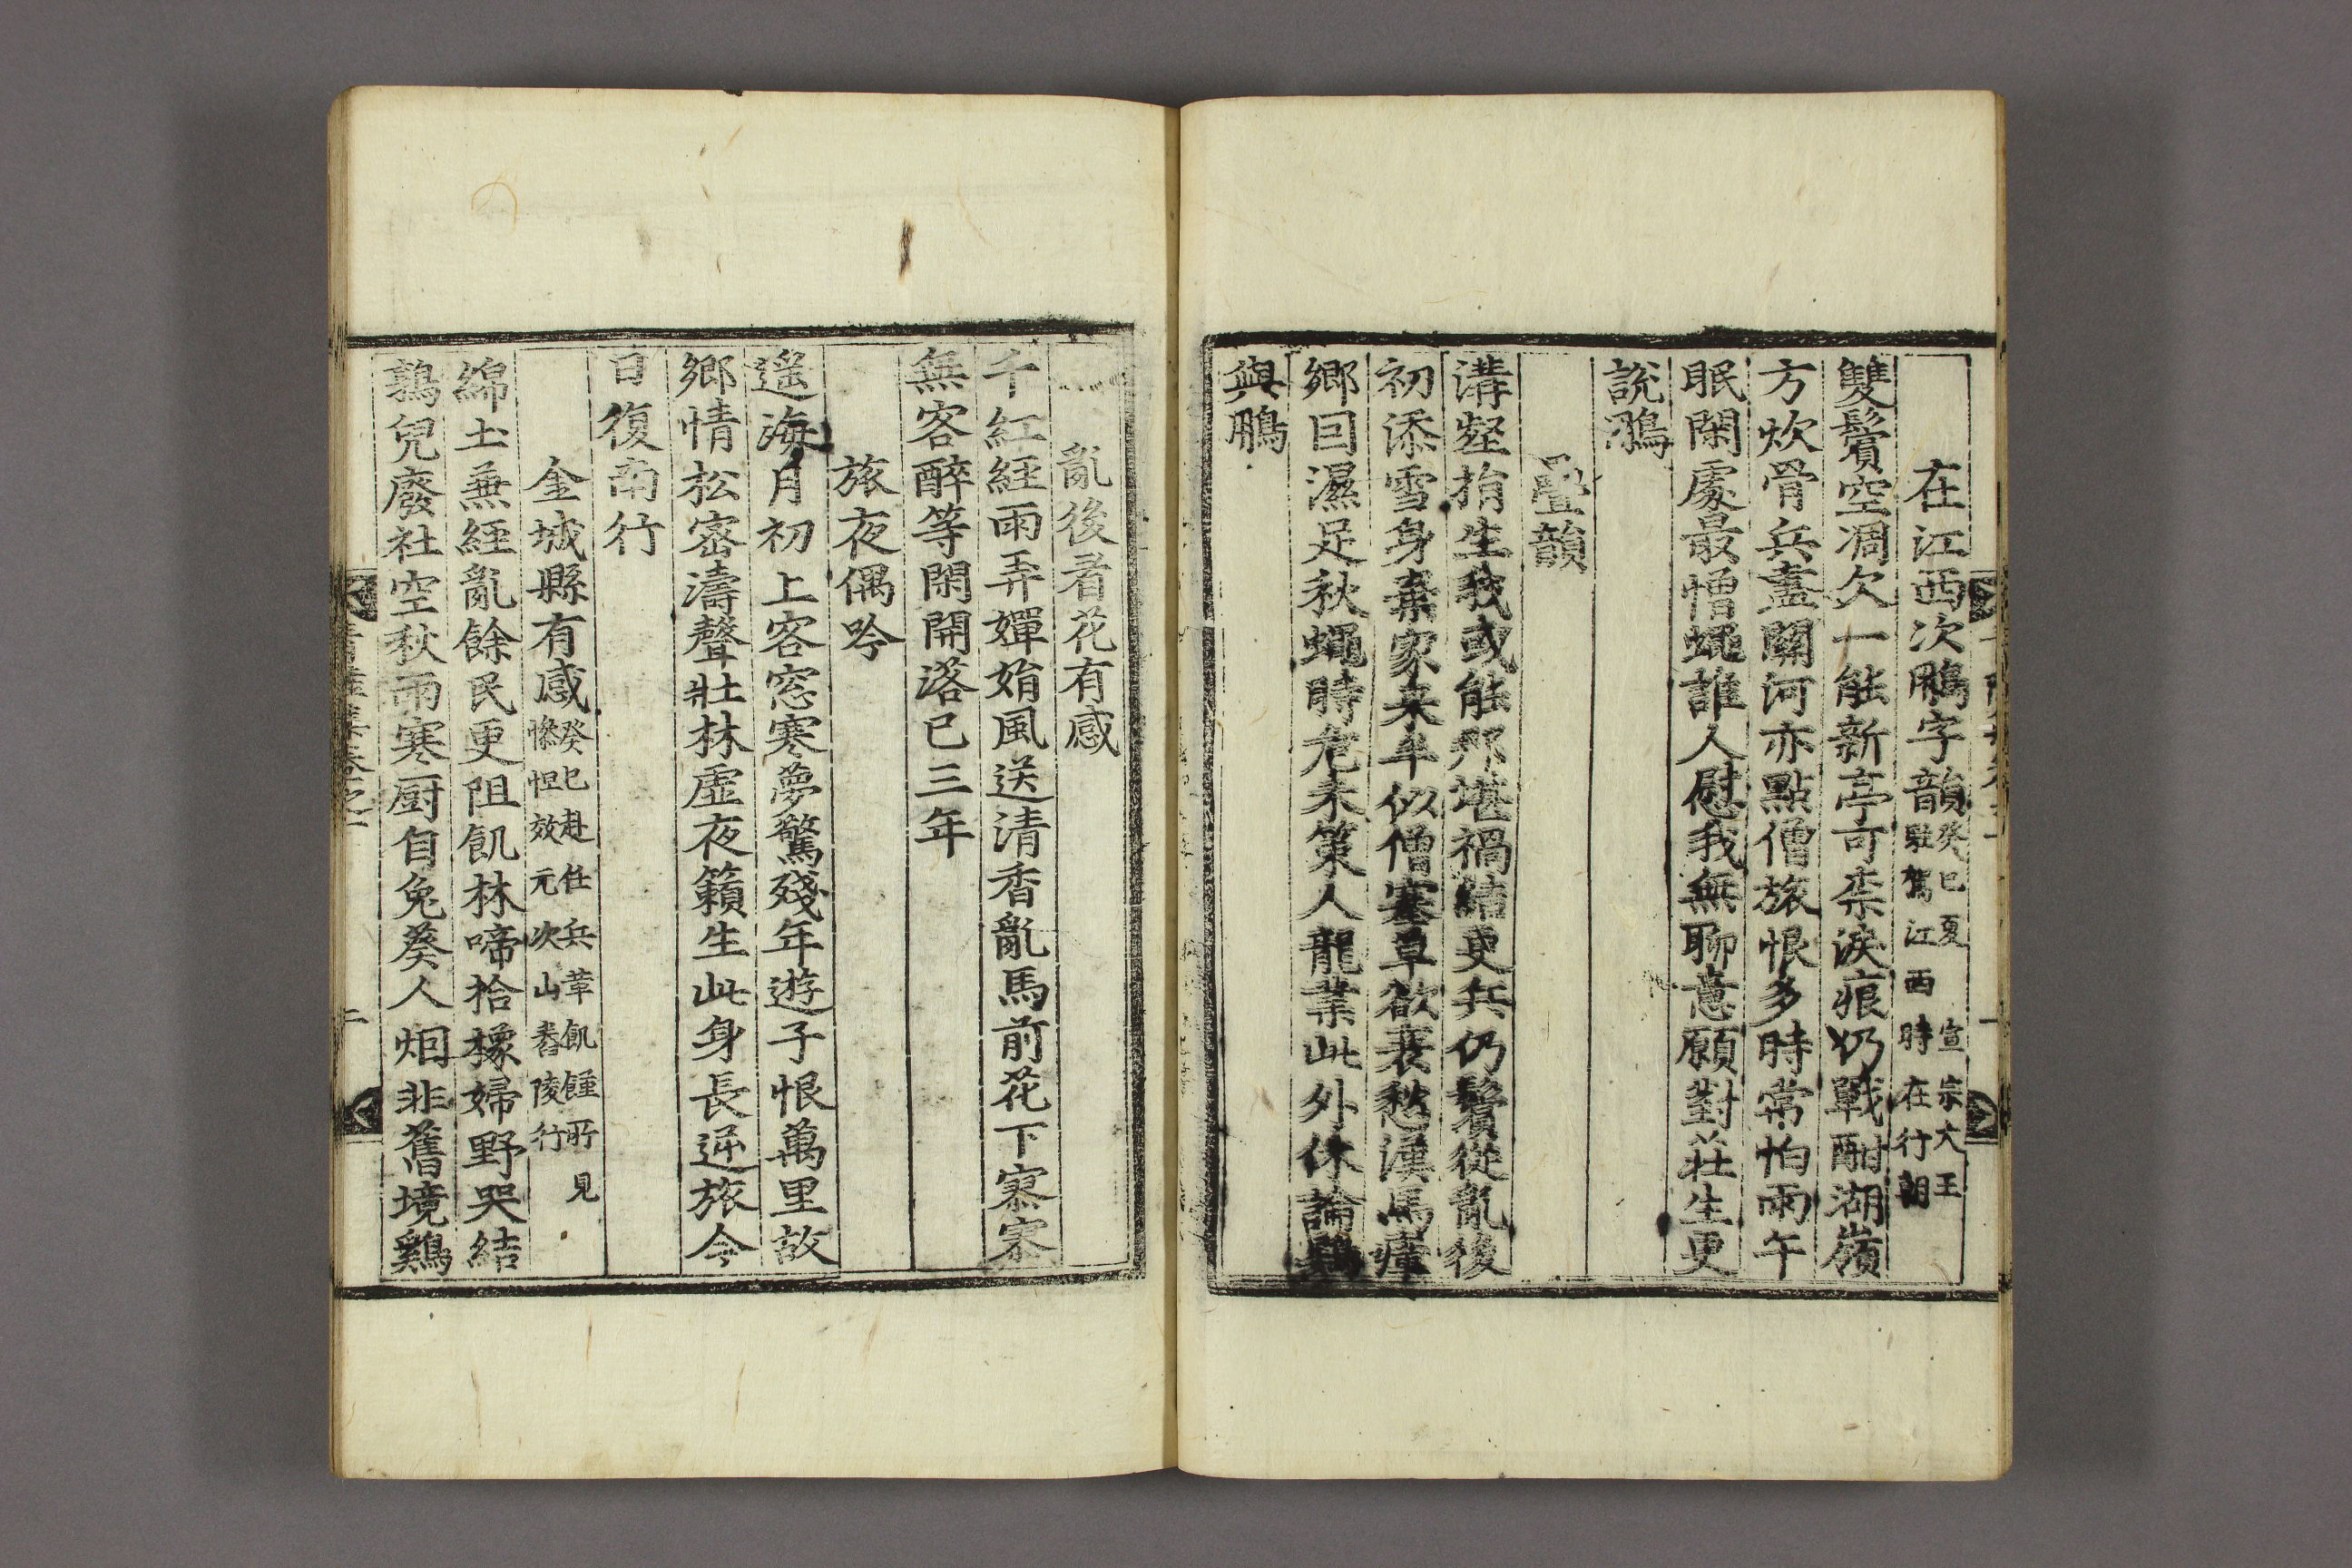 在江西次鵬字韻癸巳夏 宣宗大王
駐駕江西時在行朝
雙鬢空凋欠一能新亭可柰淚痕仍戰酣湖嶺
方炊骨兵盡關河亦點僧旅恨多時常怕雨午
眠閑處最憎蠅誰人慰我無聊意願對莊生更
說鵬
疊韻
溝壑捐生我或能那堪禍結更兵仍鬢從亂後
初添雪身棄家来半似僧塞草欲衰愁漢馬瘴
鄉回濕足秋蠅時危未策人龍業此外休論鷃
與鵬
亂後看花有感
千紅経雨弄嬋娟風送清香亂馬前花下寥寥
無客醉等閑開落已三年
旅夜偶吟
遥海月初上客窓寒夢驚殘年遊子恨萬里故
鄉情松密濤聲壯林虛夜籟生此身長逆旅今
日復南行
金城縣有感癸巳赴任兵革飢饉所見
慘怛效元次山舂陵行
綿土兼経亂餘民更阻飢林啼拾橡婦野哭結
鶉兒廢社空秋雨寒厨自兔葵人烟非舊境鷄